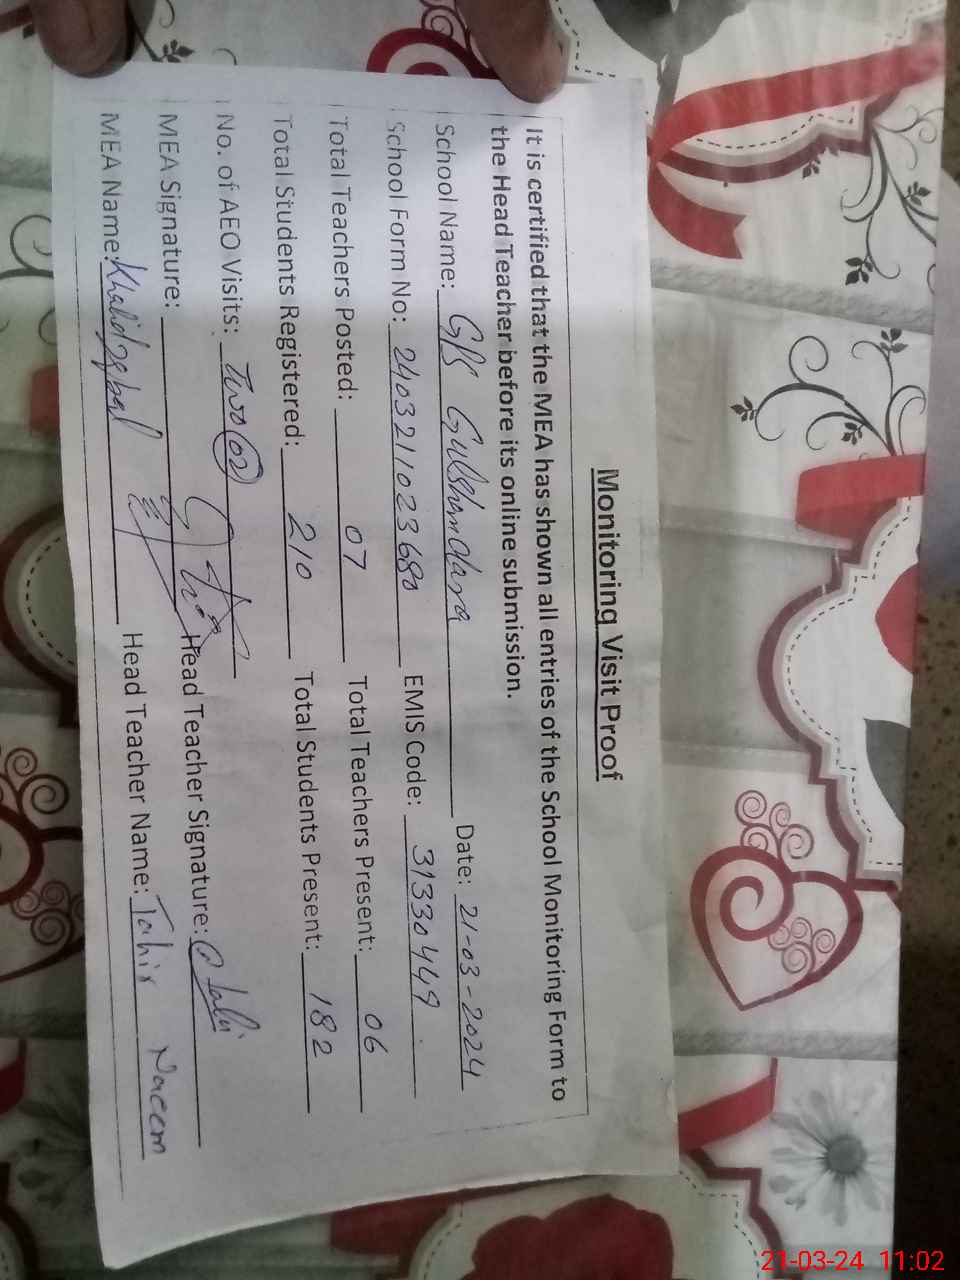 Monitoring Visit Proof
It is certified that the MEA has shown all entries of the School Monitoring Form to
the Head Teacher before its online submission.
School Name: GPS Gulshan dara Date: 21-03-2024
School Form No: 2403211023680 EMIS Code: 31330449
Total Teachers Posted: 07 Total Teachers Present: 06
Total Students Registered: 210 Total Students Present: 182
No. of AEO Visits: Two (02)
MEA Signature: Head Teacher Signature:
MEA Name: Khalid Iqbal Head Teacher Name: Tahir Naeem
21-03-24 11:02